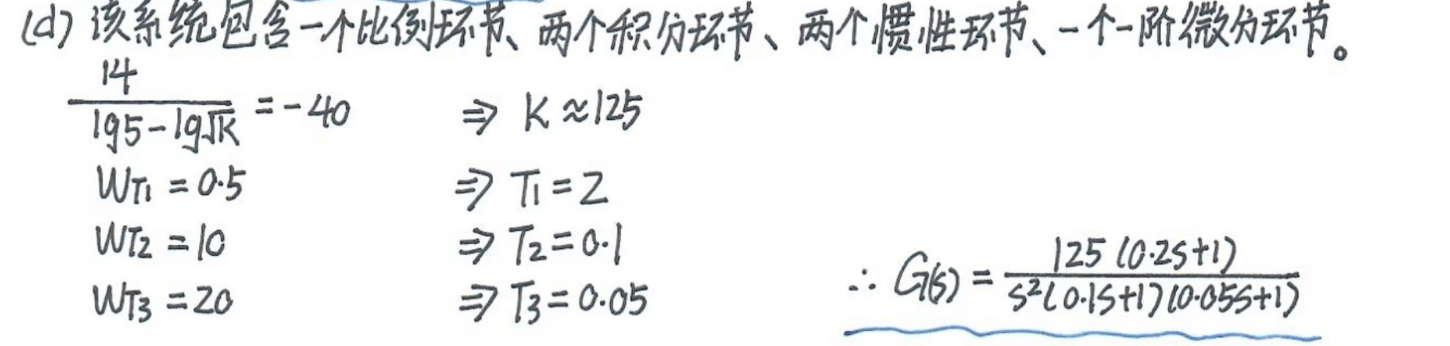 (d) 该系统包含一个比例环节、两个积分环节、两个惯性环节、一个一阶微分环节。
14/(lg5-lg√K) = -40 ⇒ K≈125
WT1 = 0.5 ⇒ T1 = 2
WT2 = 10 ⇒ T2 = 0.1
WT3 = 20 ⇒ T3 = 0.05
∴ G(s) = 125(0.2s+1)/(s²(0.1s+1)(0.05s+1))